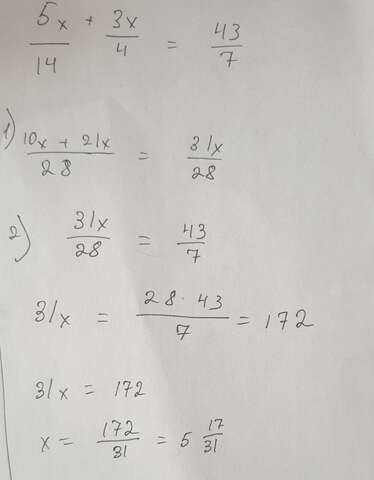 5x/14 + 3x/4 = 43/7
1) (10x + 21x)/28 = 31x/28
2) 31x/28 = 43/7
31x = (28 · 43)/7 = 172
31x = 172
x = 172/31 = 5 17/31